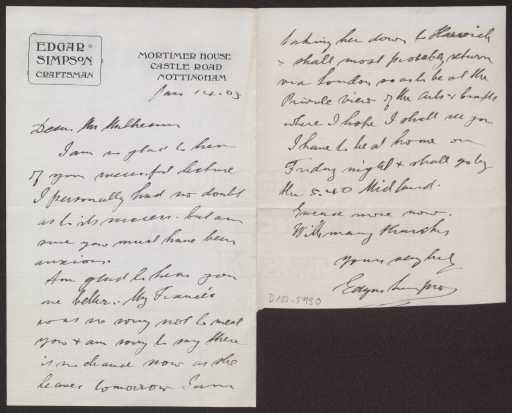 EDGAR
SIMPSON
CRAFTSMAN
MORTIMER HOUSE
CASTLE ROAD
NOTTINGHAM
Jan 14. 03
Dear Mr
I am so glad to hear
of your successful lecture
I personally had no doubt
as to its success. but am
sure you must have been
anxious.
Am glad to hear you
are better. My Francés
was so sorry not to meet
you & am sorry to say there
is no chance now as she
leaves tomorrow I am
taking her down to Harwich
& shall most probably return
via London so as to be at the
Private View of the Arts & Crafts
where I hope I shall see you
I have to be at home on
Friday night & shall go by
the 5.40 Midland.
Excuse more now.
With many thanks
Yours very truly
Edgar Simpson
D 151-5930